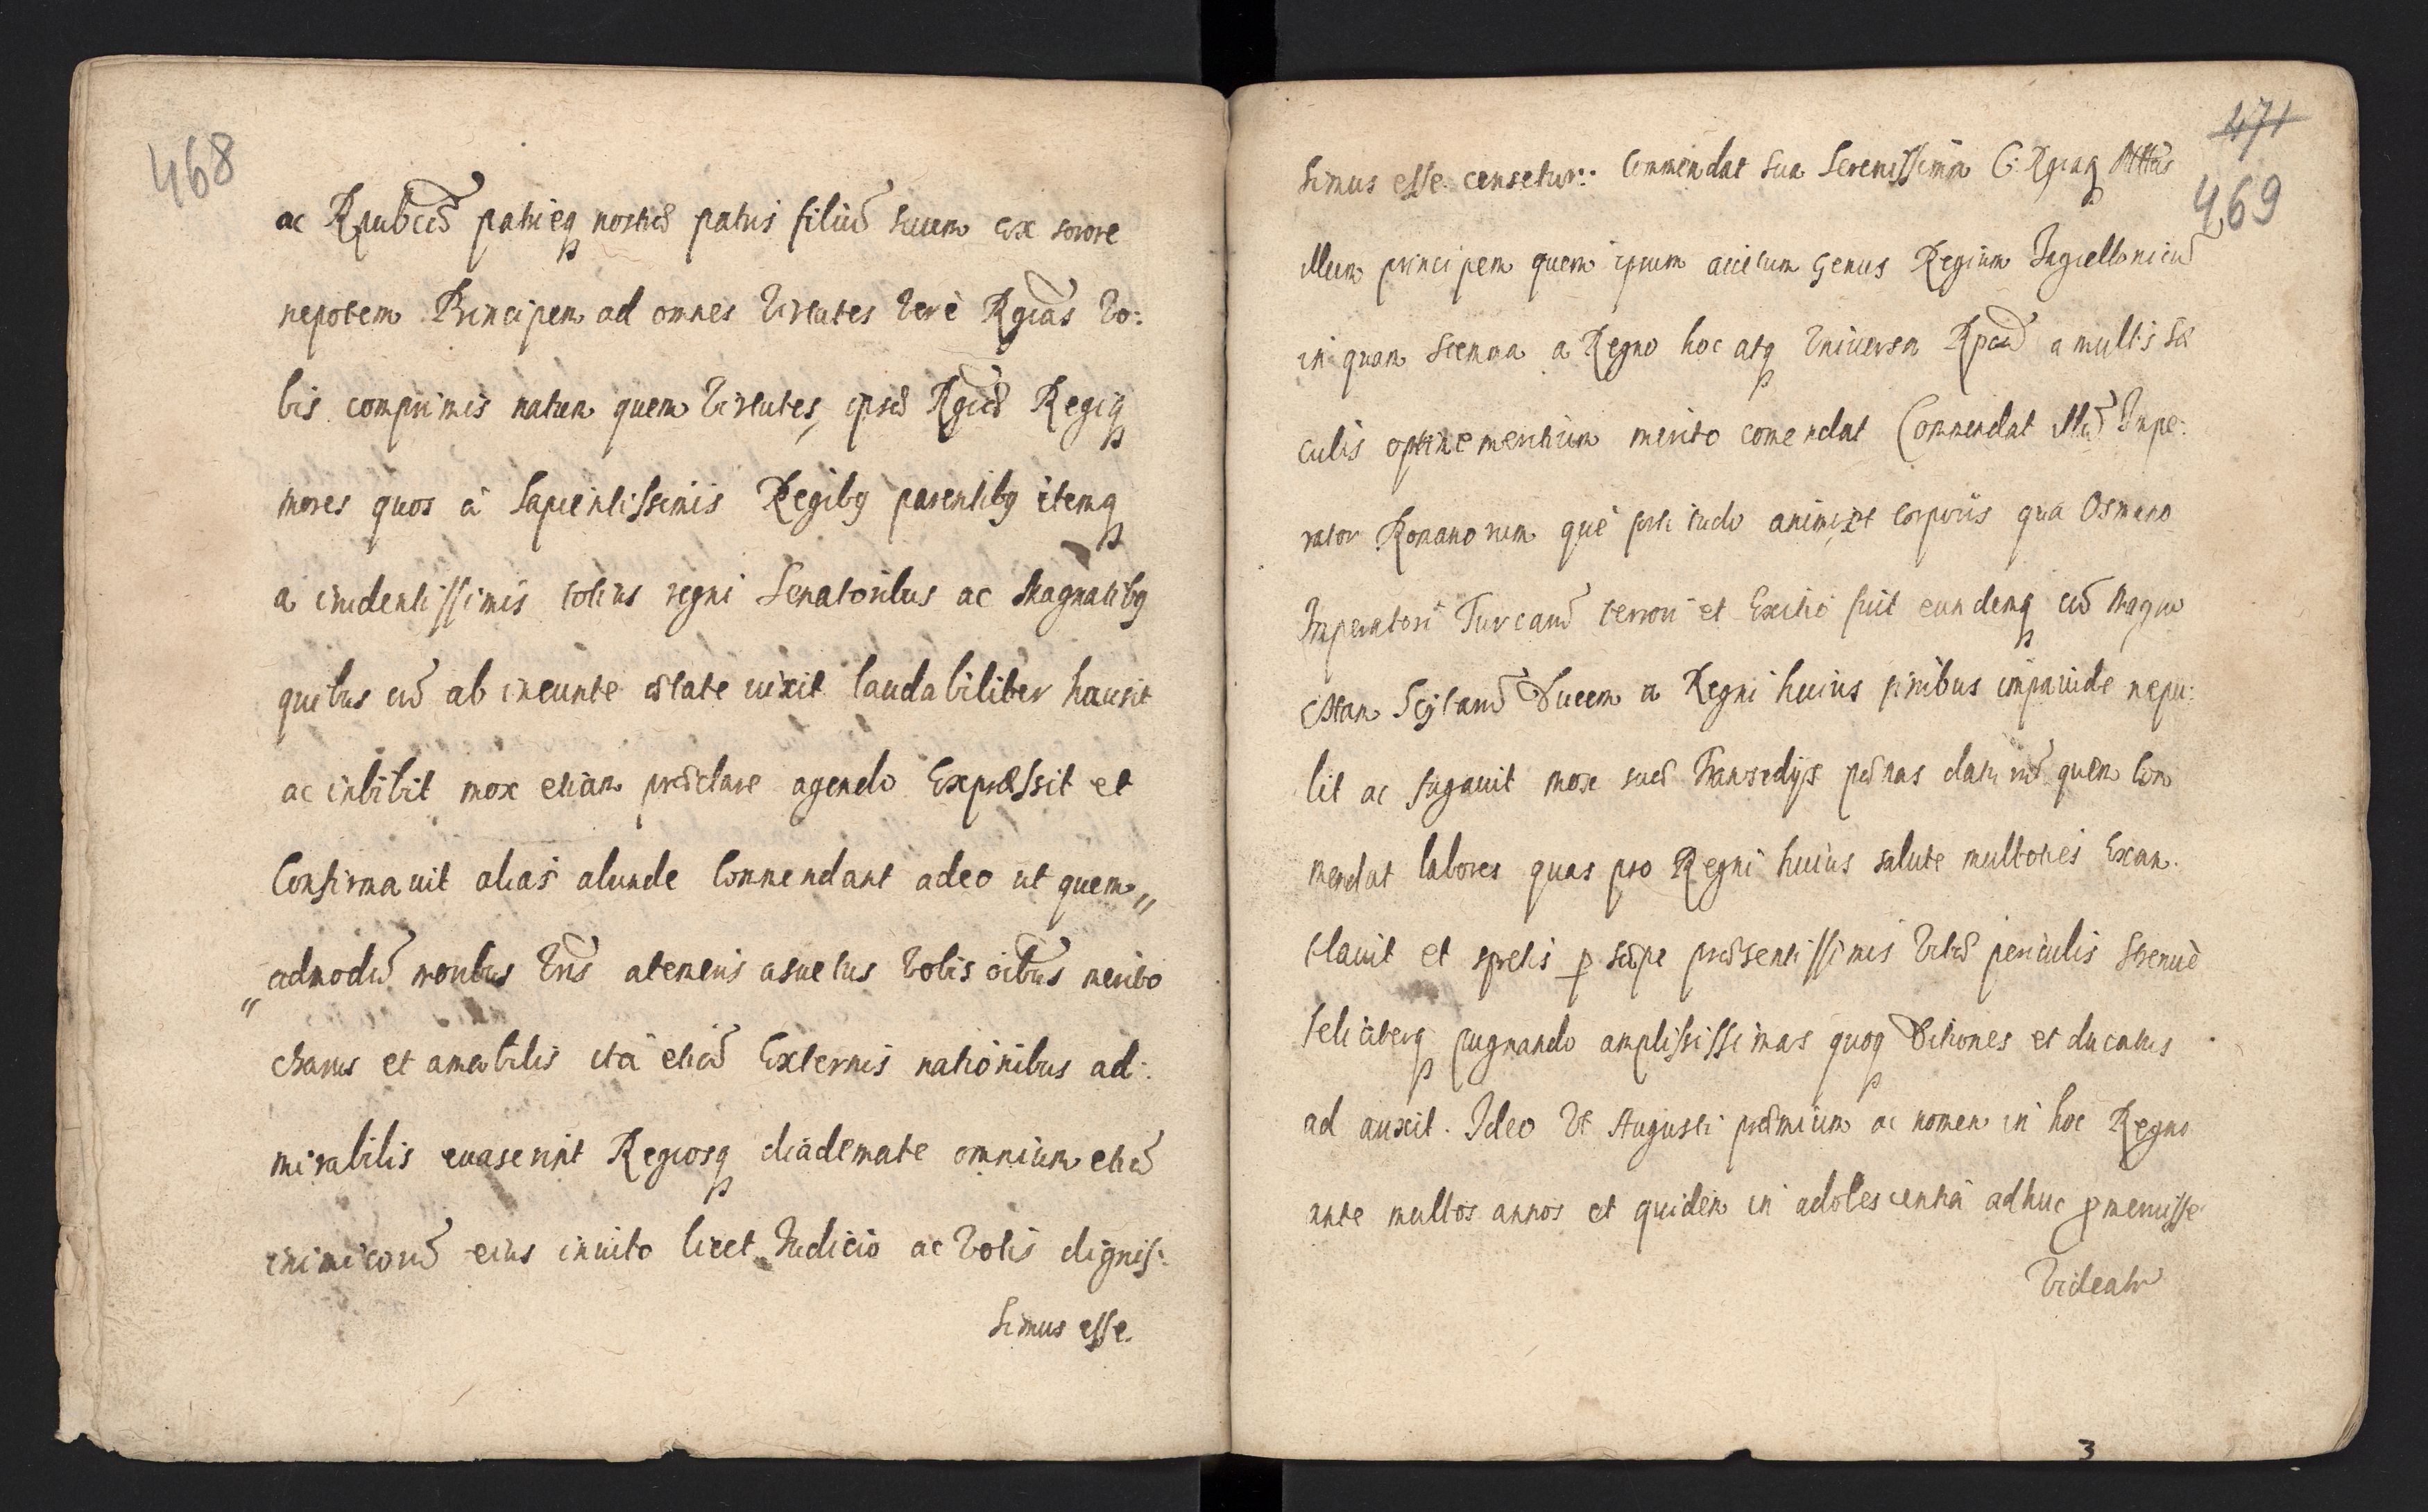 468
ac Rpubcæ patrieq nostræ patris filiũ suum ex sorore
nepotem Principem ad omnes Virtutes Verè Rgias Vo:
bis comprimis natum quem Virtutes, ipsæ Rgiæ Regiq
mores quos à Sapientissimis Regibq parentibq itemq
a prudentissimis totius regni Senatoribus ac Magnatibq
quibus cũ ab ineunte ætate uixit laudabiliter hausit
ac inbibit mox etiam præclare agendo Expressit et
Confirmauit alias alunde Commendant adeo ut quem„
„admodũ moribus Vris a teneris asuetus Vobis oibus merito
charus et amabilis ità etiã Externis nationibus ad:
mirabilis euaserint Regiosq diademate omnium etiã
inimicorũ eius inuito licet Judicio ac Votis dignis:
simus esse
471
469
simus esse censetur: Commendat sua Serenissima C: Rgiaq Mttas
illum principem quem ipsum
Genus Regium Jagiellonicũ
in quam Stemma a Regno hoc atq Vniuersa Rpcã a multis Sæ
culis optime meritum merito comendat Commendat illũ Impe:
rator Romanorum què fortitudo animi, et corporis qua Osmano
Imperatori Turcarũ terrori et Exitio fuit eundemq cũ Magno
illam Scytarũ Ducem a Regni huius finibus impauide repu:
lit ac fugauit mox suæ
pænas daturũ quem Com
mendat labores quas pro Regni huius salute multoties Exan:
tlauit et spretis p sæpe præsentissimis Vitæ periculis Strenuè
feliciterq pugnando amplississimas quoq Ditiones et ducatus
ad auxit. Ideo Vt Augusti præmium ac nomen in hoc Regno
ante multos annos et quidem in adolescentia adhuc pmeruisse
Videatur
3